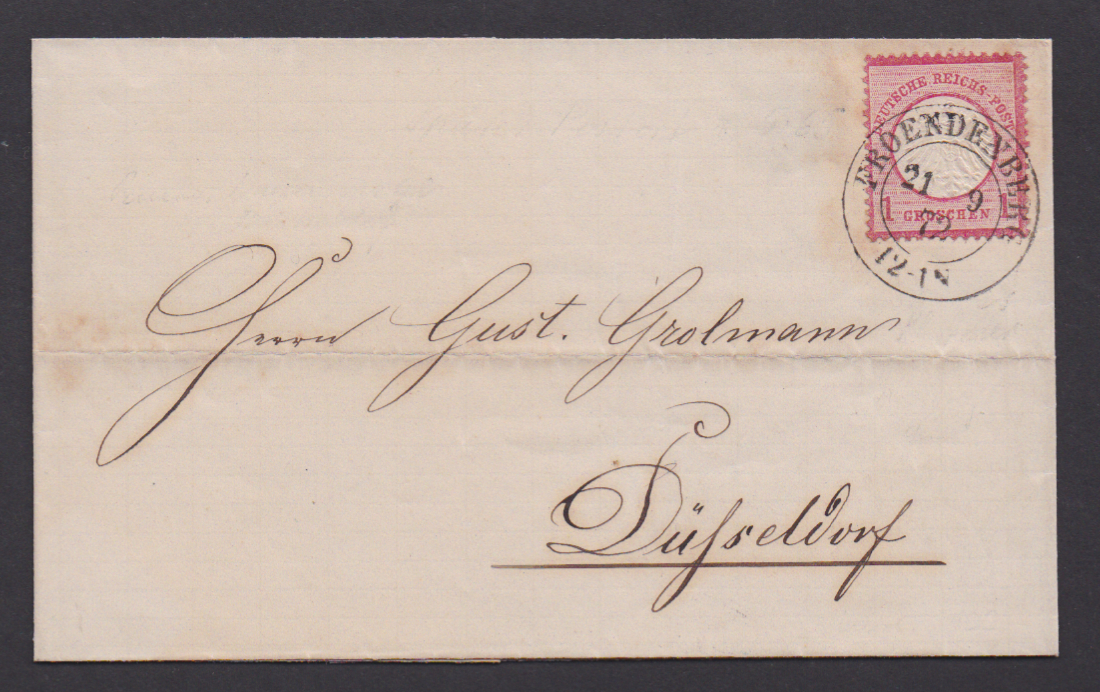 DEUTSCHE REICHS-POST
1 GROSCHEN 1
FROENDENBERG
21 9
72
12-1N
Herrn Gust. Grolmann
Düſseldorf